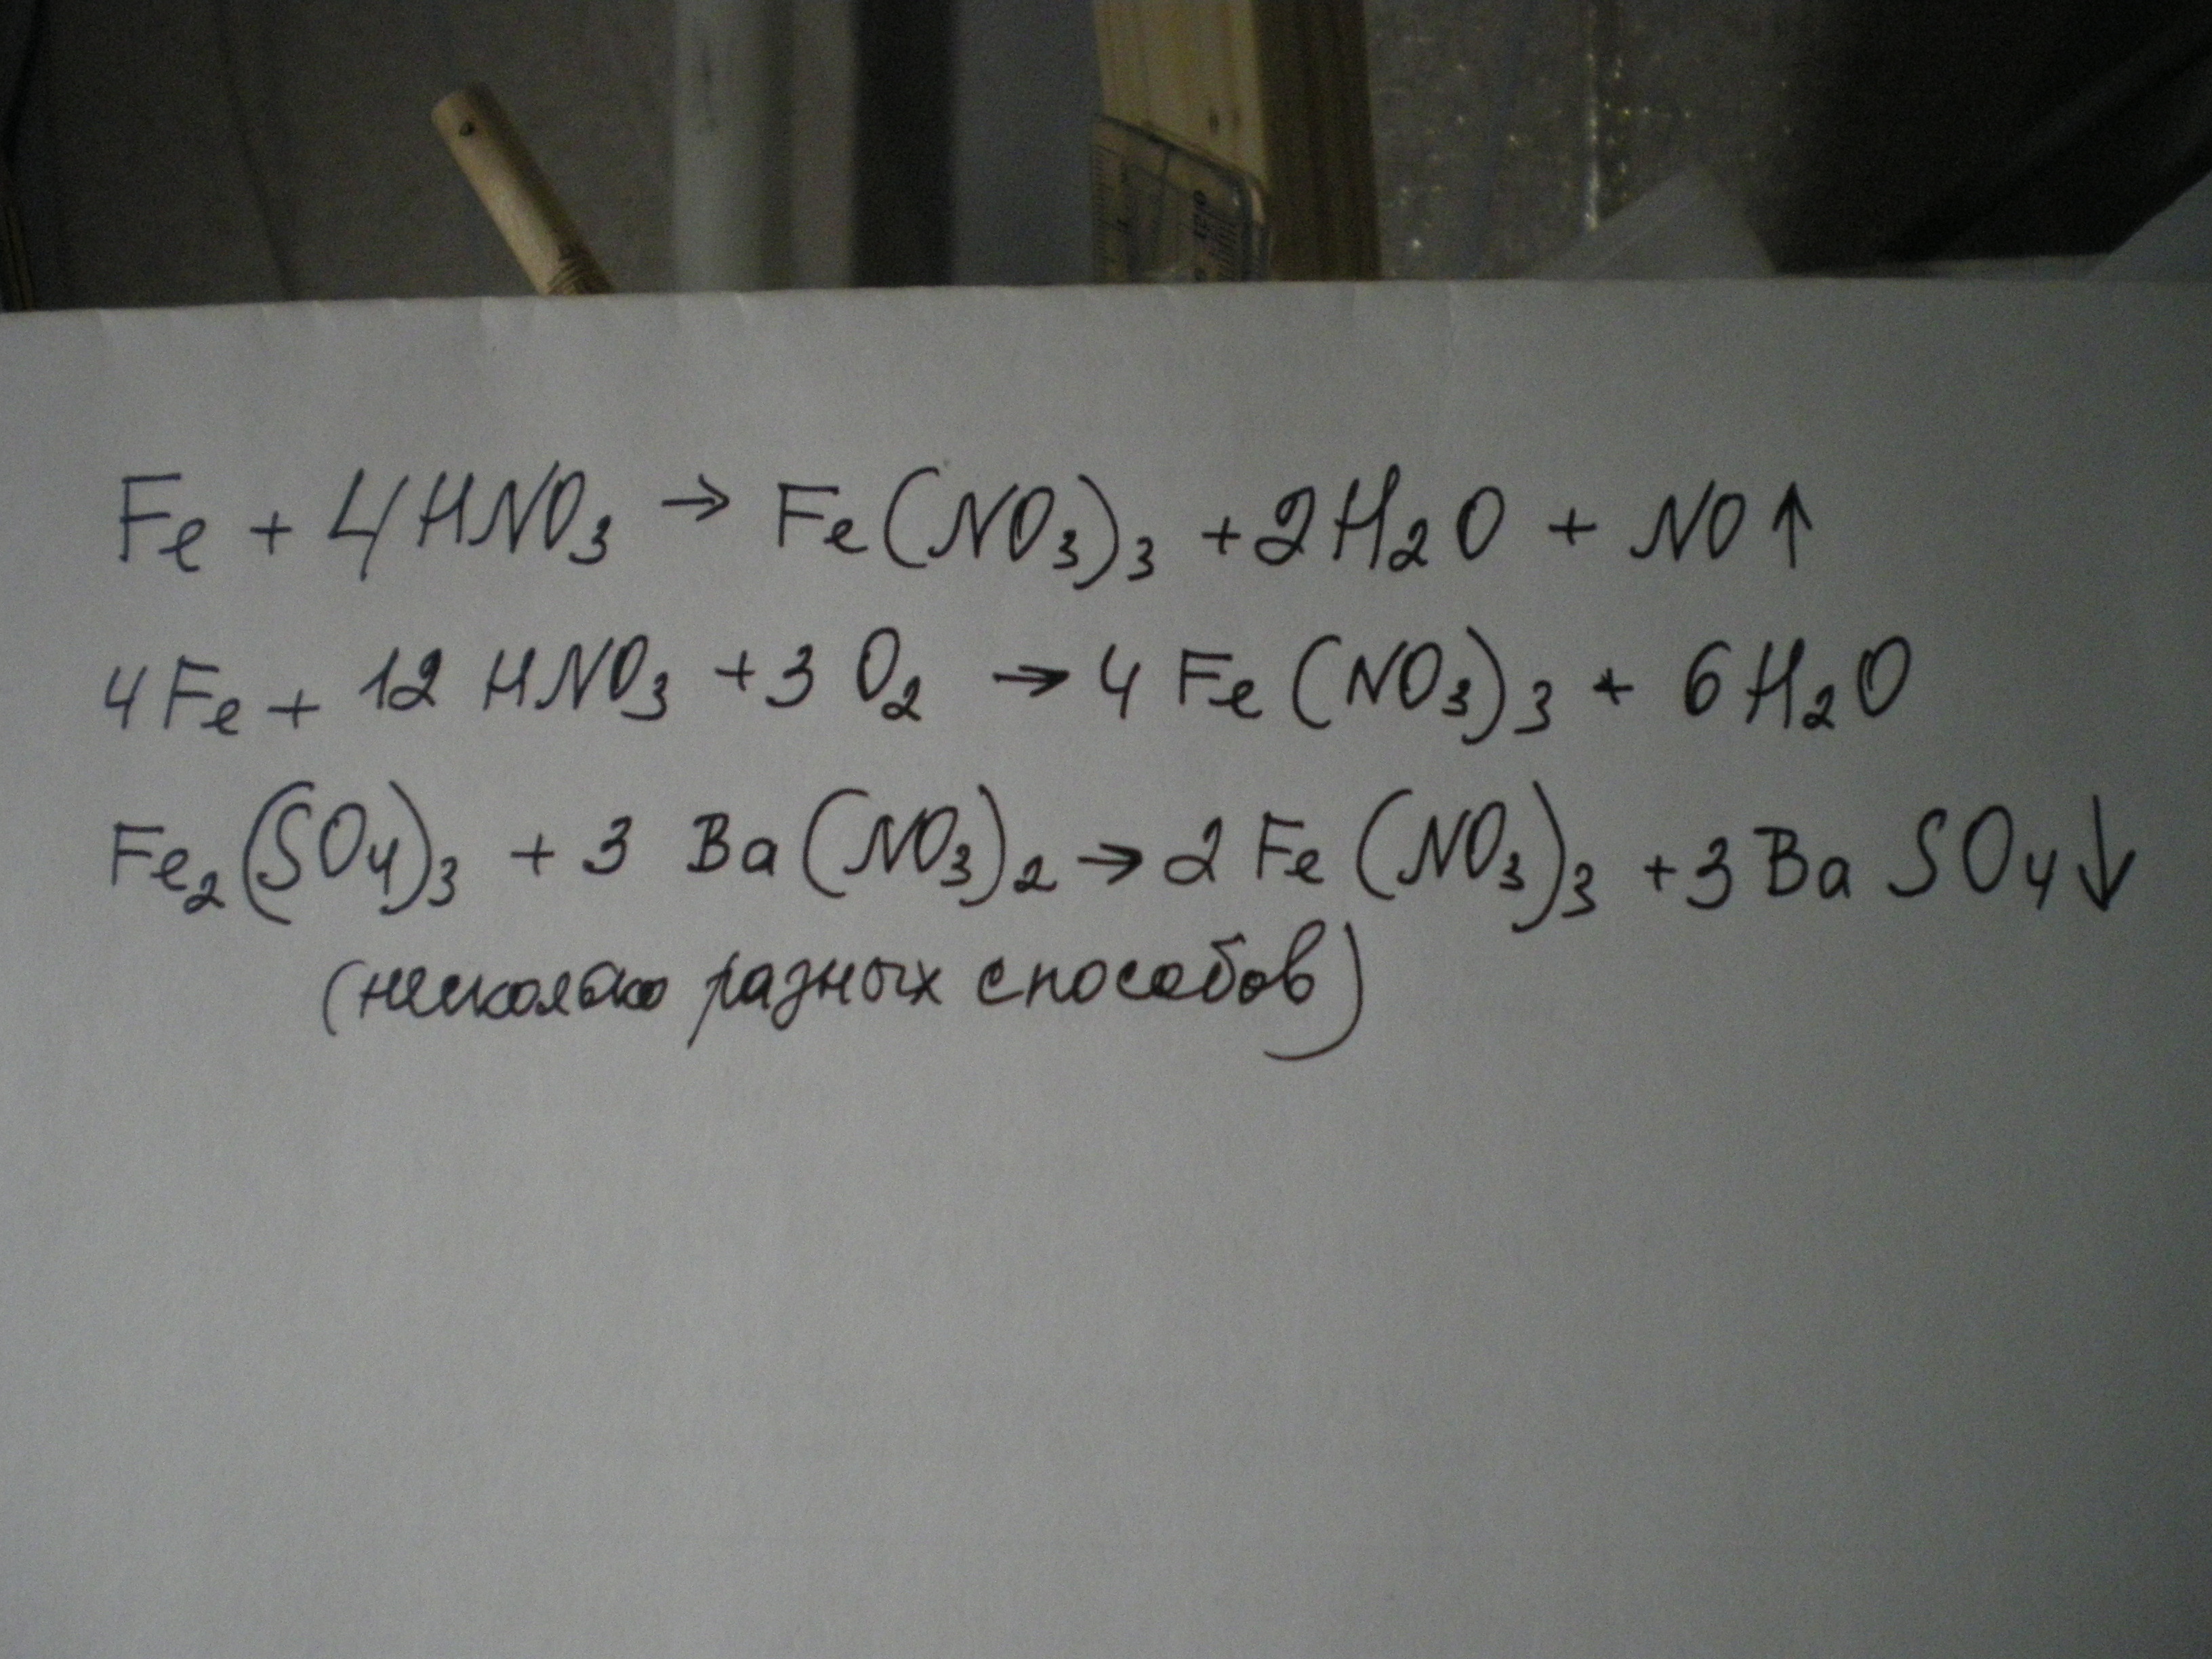 Fe + 4HNO₃ → Fe(NO₃)₃ + 2H₂O + NO↑
4Fe + 12HNO₃ + 3O₂ → 4Fe(NO₃)₃ + 6H₂O
Fe₂(SO₄)₃ + 3Ba(NO₃)₂ → 2Fe(NO₃)₃ + 3BaSO₄↓
(несколько разных способов)